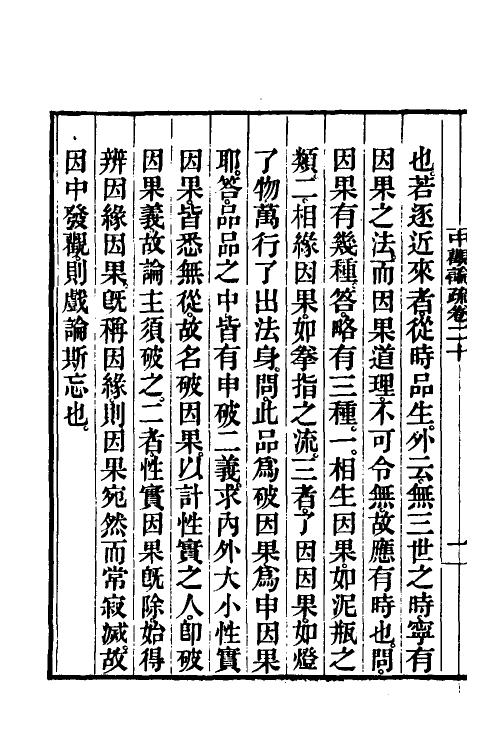 中觀論疏卷二十
一
也。若逐近來者。從時品生。外云。無三世之時。寧有
因果之法。而因果道理。不可令無。故應有時也。問。
因果有幾種。答。略有三種。一。相生因果。如泥瓶之
類。二。相緣因果。如拳指之流。三者。了因因果。如燈
了物萬行了出法身。問。此品爲破因果。爲申因果
耶。答。品品之中皆有申破二義。求內外大小性實
因果。皆悉無從。故名破因果。以計性實之人。卽破
因果義。故論主須破之。二者。性實因果旣除。始得
辨因緣因果。旣稱因緣。則因果宛然而常寂滅。故
因中發觀。則戲論斯忘也。